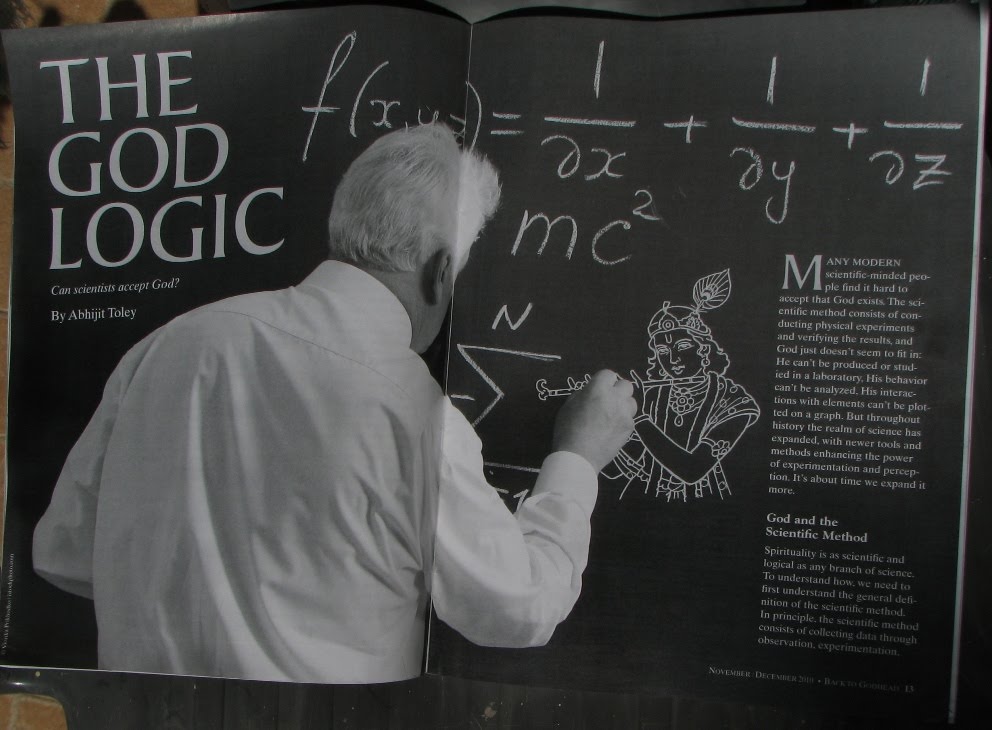 THE
GOD
LOGIC
Can scientists accept God?
By Abhijit Toley
f(x,y,z) = 1/∂x + 1/∂y + 1/∂z
mc²
N
Σ
MANY MODERN
scientific-minded peo-
ple find it hard to
accept that God exists. The sci-
entific method consists of con-
ducting physical experiments
and verifying the results, and
God just doesn't seem to fit in:
He can't be produced or stud-
ied in a laboratory, His behavior
can't be analyzed. His interac-
tions with elements can't be plot-
ted on a graph. But throughout
history the realm of science has
expanded, with newer tools and
methods enhancing the power
of experimentation and percep-
tion. It's about time we expand it
more.
God and the
Scientific Method
Spirituality is as scientific and
logical as any branch of science.
To understand how, we need to
first understand the general defi-
nition of the scientific method.
In principle, the scientific method
consists of collecting data through
observation, experimentation,
NOVEMBER / DECEMBER 2010 • BACK TO GODHEAD 13